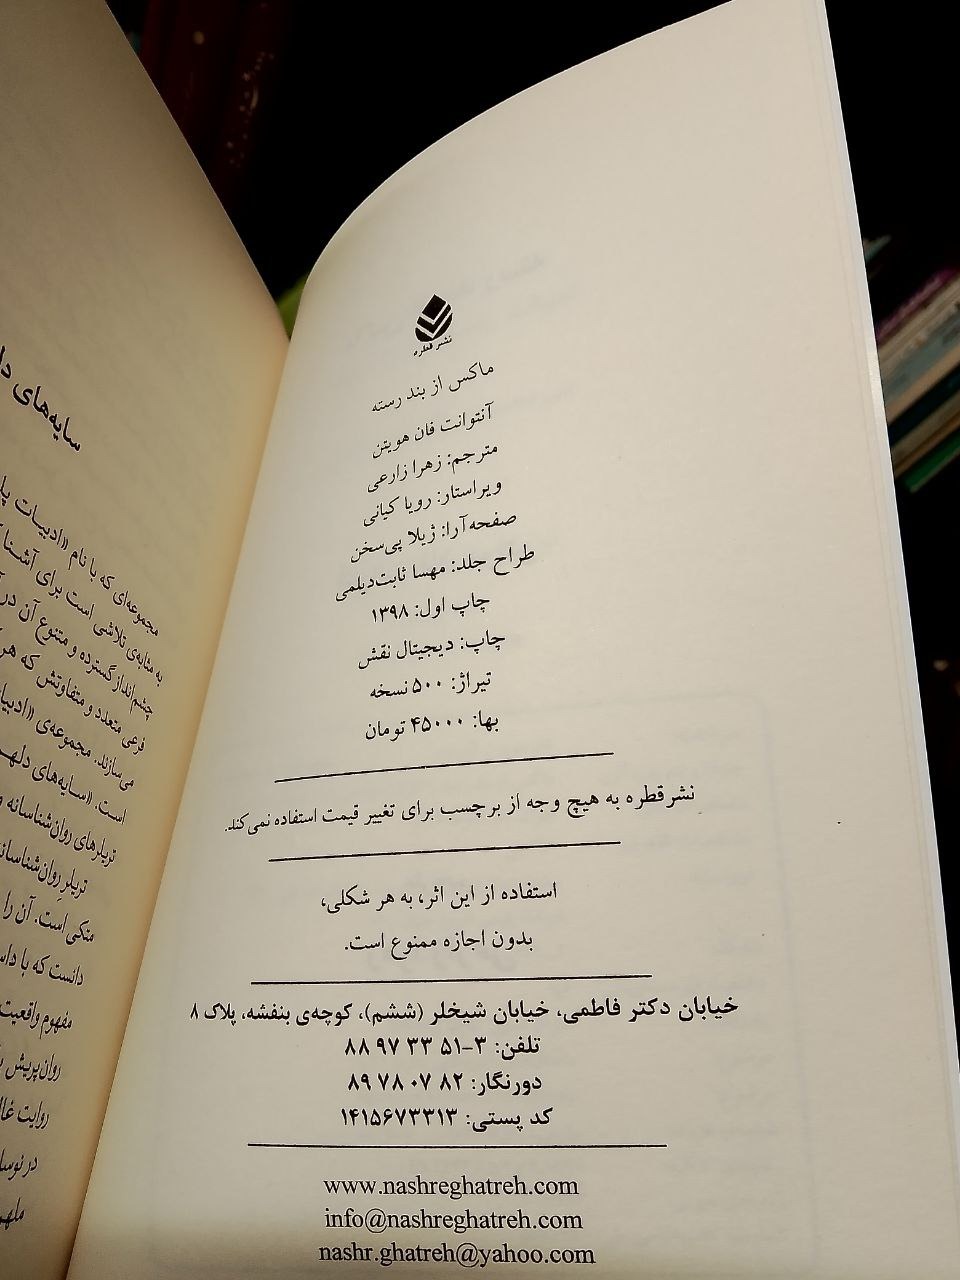 نشر قطره
ماکس از بند رسته
آنتوانت فان هویتن
مترجم: زهرا زارعی
ویراستار: رویا کیانی
صفحه‌آرا: ژیلا پی‌سخن
طراح جلد: مهسا ثابت‌دیلمی
چاپ اول: ۱۳۹۸
چاپ: دیجیتال نقش
تیراژ: ۵۰۰ نسخه
بها: ۴۵۰۰۰ تومان
نشر قطره به هیچ وجه از برچسب برای تغییر قیمت استفاده نمی‌کند.
استفاده از این اثر، به هر شکلی،
بدون اجازه ممنوع است.
خیابان دکتر فاطمی، خیابان شیخلر (ششم)، کوچه‌ی بنفشه، پلاک ۸
تلفن: ۳-۵۱ ۳۳ ۹۷ ۸۸
دورنگار: ۸۲ ۰۷ ۷۸ ۸۹
کد پستی: ۱۴۱۵۶۷۳۳۱۳
www.nashreghatreh.com
info@nashreghatreh.com
nashr.ghatreh@yahoo.com
سایه‌های
مجموعه‌ای که با نام «ادبیات
به مثابه‌ی تلاشی است برای
چشم‌انداز گسترده و متنوع آن در
فرعی متعدد و متفاوتش که هر
می‌سازند. مجموعه‌ی
است. «سایه‌های
تریلرهای روان‌شناسانه
تریلر روان‌شناسانه
متکی است. آن را
دانست که با
مفهوم واقعیت
روان‌پریش
روایت
در